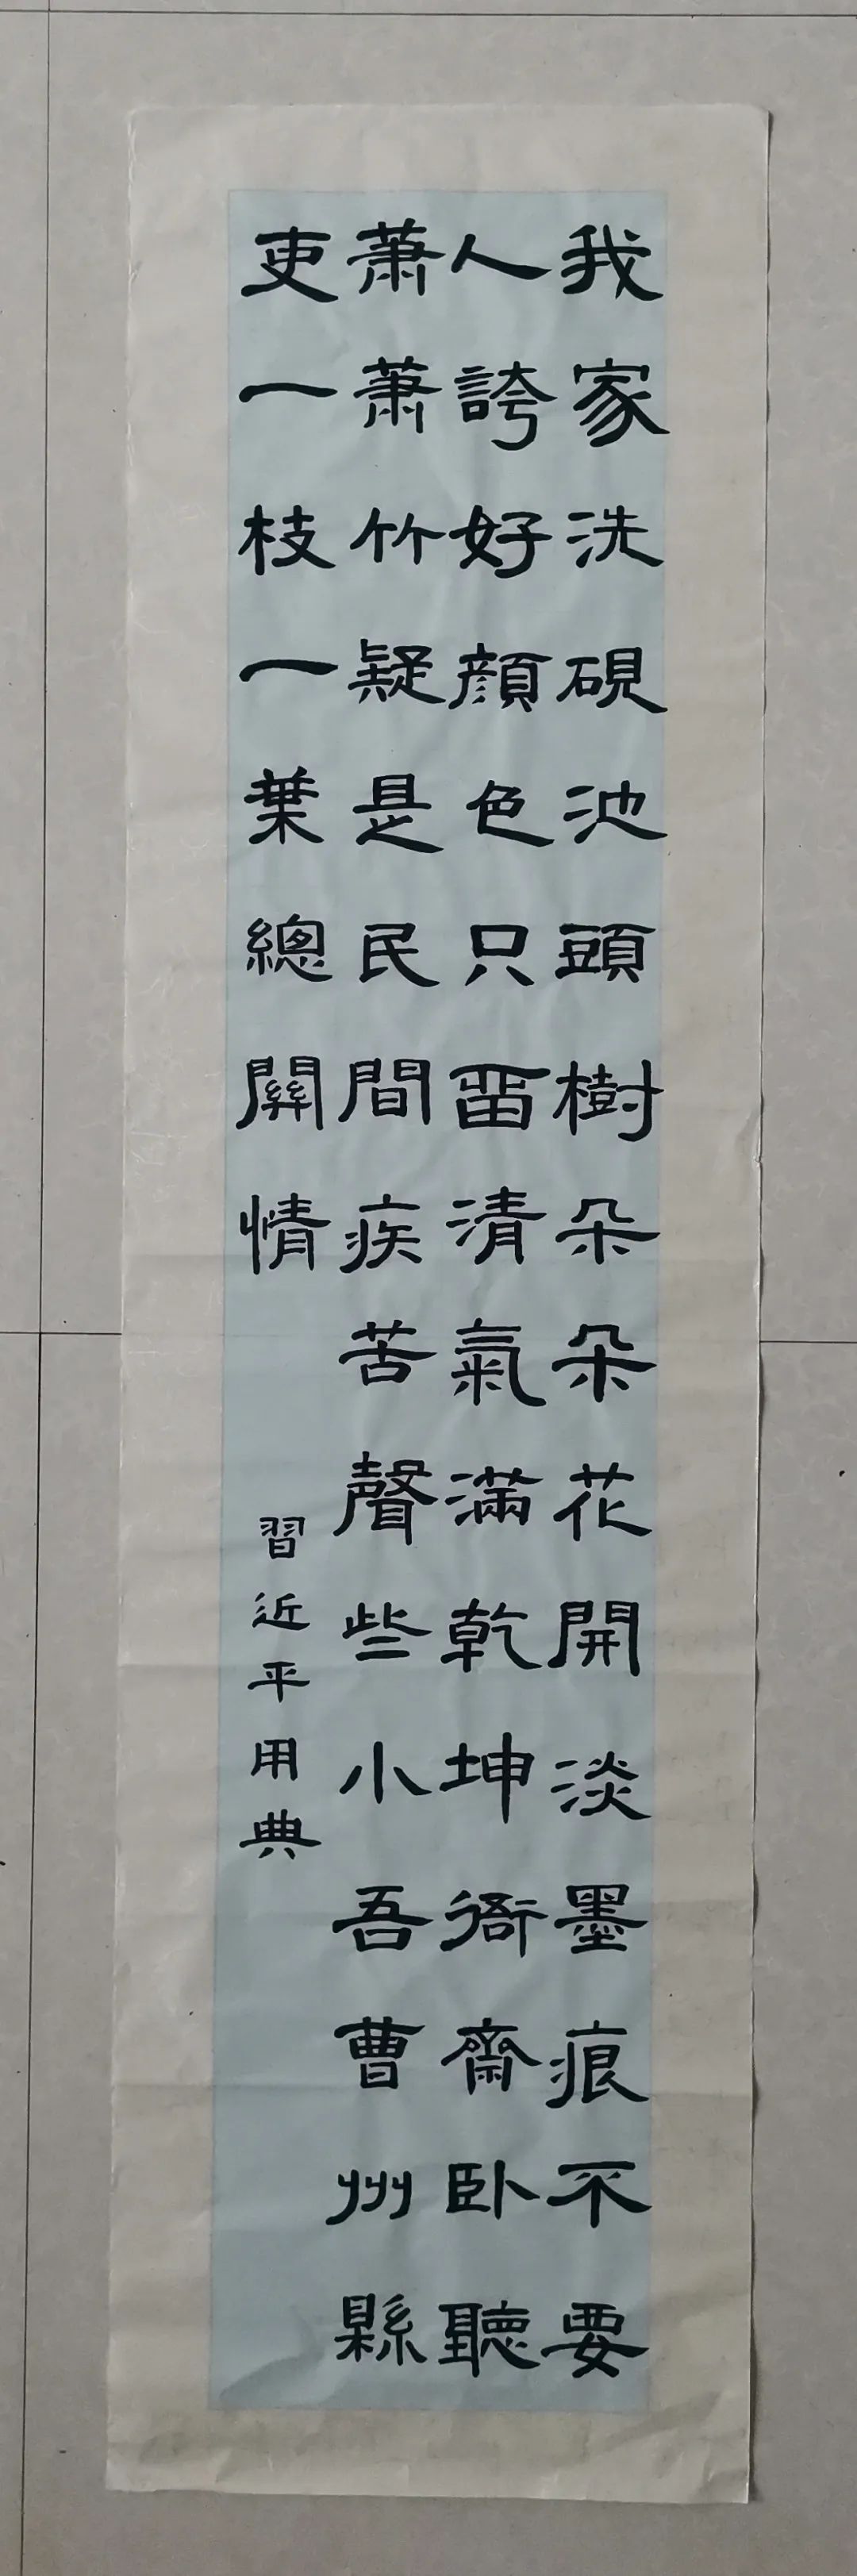 我家洗硯池頭樹朵朵花開淡墨痕不要
人誇好顏色只畱清氣滿乾坤衙齋卧聽
蕭蕭竹疑是民間疾苦聲些小吾曹州縣
吏一枝一葉總關情
習近平用典